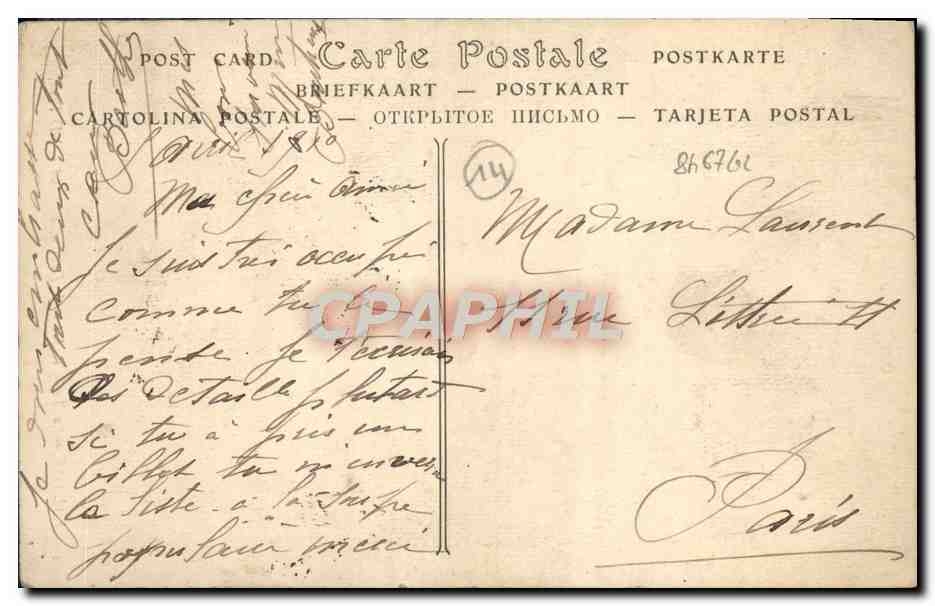 POST CARD Carte Postale POSTKARTE
BRIEFKAART — POSTKAART
CARTOLINA POSTALE — ОТКРЫТОЕ ПИСЬМО — TARJETA POSTAL
14
846762
Ma chère Amie
Je suis très occupé
comme tu le
pense. Je t'écrirais
des detaille plutard
si tu a pris un
billet tu m'envera
la liste a la Soupe
populaire merci
Je vous embrasse
tous deux de tout
cœur
Madame Laurent
11 rue Littré 11
Paris
CPAPHIL